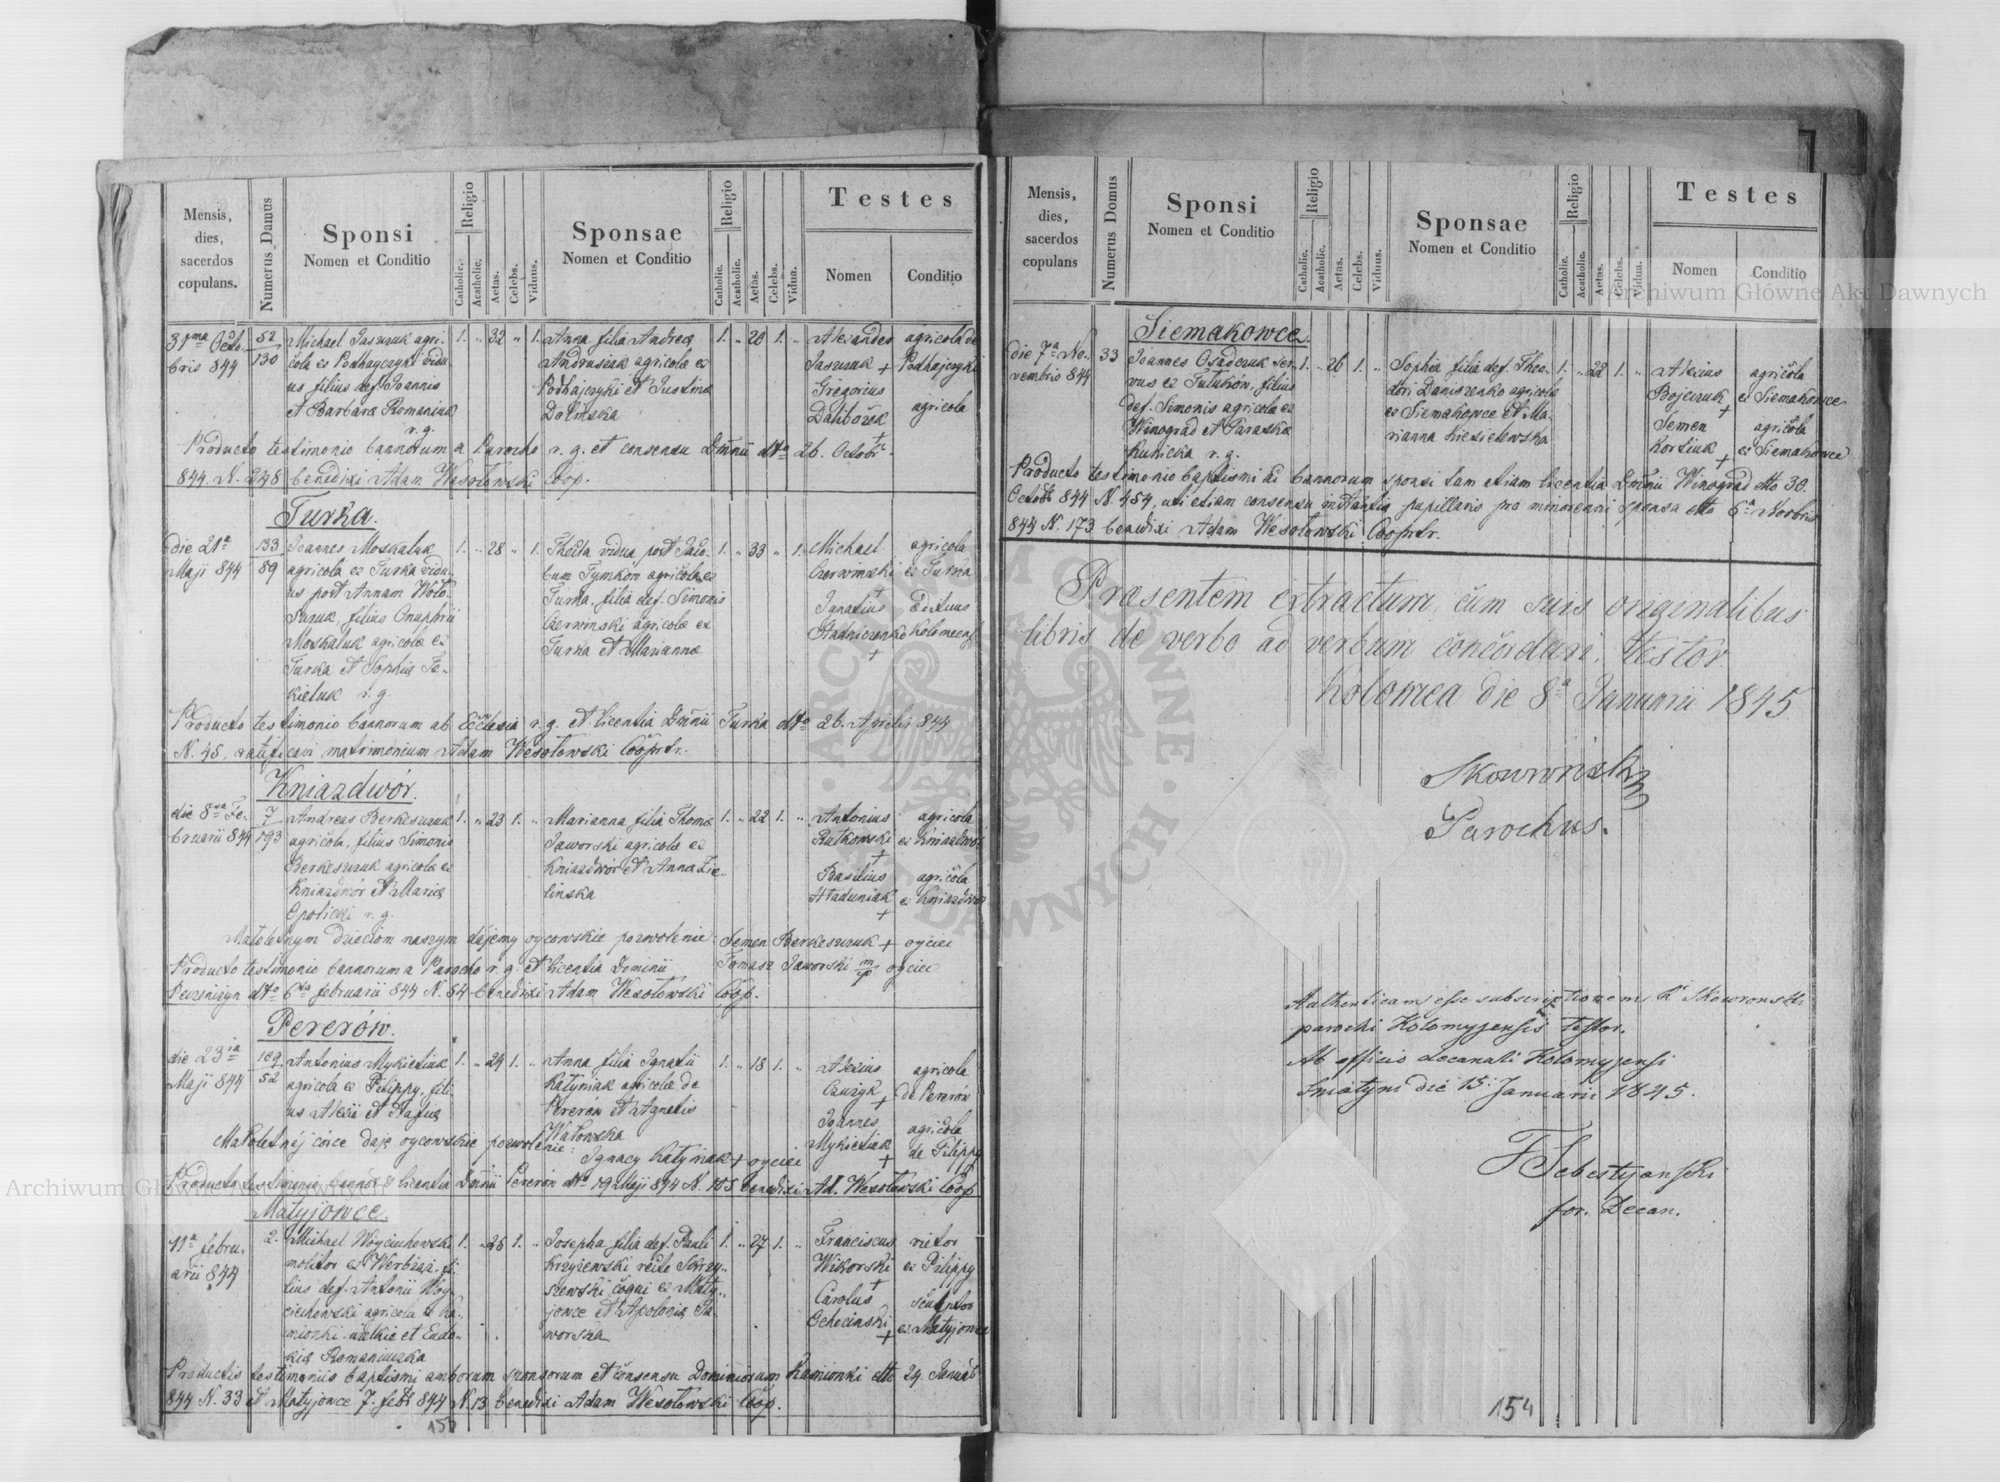 Mensis, dies, sacerdos copulans.
Numerus Damus
Sponsi
Nomen et Conditio
Religio
Catholic.
Acatholic.
Aetas.
Celebs.
Viduus.
Sponsae
Nomen et Conditio
Religio
Catholic.
Acatholic.
Aetas.
Celebs.
Vidua.
Testes
Nomen
Conditio
31ma Octo-
bris 844
52
130
Michael Jaszczuk agri-
cola ex Podhayczyki vidu-
us filius def. Joannis
et Barbara Romaniuk
r. g.
1. „ 32 „ 1.
Anna filia Andreæ
Andrusiak agricolæ ex
Podhajczyki et Justina
Dolinska
1. „ 20 1. „
Alexander
Jaszczuk +
Gregorius
+
agricola de
Podhajczyki
agricola
Producto testimonio bannorum a Parocho r. g. et consensu Dominii dto 26. Octobr.
844 N. 248 benedixi Adam Wesołowski Coop.
Turka.
die 21a
Maji 844
133
89
Joannes Moskaluk
agricola ex Turka vidu-
us post Annam Woło-
szczuk, filius Onuphrii
Moskaluk agricolæ ex
Turka et Sophia Fe-
kieluk r. g.
1. „ 28 „ 1.
Thecla vidua post Jaco-
bum Tymkow agricolæ ex
Turka, filia def. Simonis
Czerwinski agricolæ ex
Turka et Marianna
1. „ 33 „ 1.
Michael
Czerwinski
Ignatius
Stadniczenko
+
agricola
ex Turka
Edituus
Kolomeens.
Producto testimonio bannorum ab Ecclesia r. g. et licentia Dominii Turka dto 26. Aprilis 844
N. 45, ratificavi matrimonium Adam Wesołowski Cooprtr.
Kniazdwór.
die 8va Fe-
bruarii 844
7
193
Andreas Berkeszczuk
agricola, filius Simonis
Berkeszczuk agricolæ ex
Kniazdwór et Maria
Opolicki r. g.
1. „ 23 1. „
Marianna filia Thomæ
Jaworski agricolæ ex
Kniazdwór et Anna Zie-
linska
1. „ 22 1. „
Antonius
Rutkowski
+
Basilius
Hładuniak
+
agricola
ex Kniazdwór
agricola
ex Kniazdwór
Małoletnym dzieciom naszym dajemy oycowskie pozwolenie Semen Berkeszczuk + oyciec
Producto testimonio bannorum a Parocho r. g. et licentia Dominii Tomasz Jaworski mp oyciec
Peczeniżyn dto 6ta februarii 844 N. 64 benedixi Adam Wesołowski Coop.
Pererów.
die 23ia
Maji 844
109
52
Antonius Mykietiuk
agricola ex Pilippy, fili-
us Alexii et Nastia
1. „ 24 1. „
Anna filia Ignatii
Katyniak agricolæ de
Pererów et Agnetis
Wałowska
1. „ 18 1. „
Alexius
+
Joannes
Mykietiuk
+
agricola
de Pererów
agricola
de Pilippy
Małoletnéj córce daje oycowskie pozwolenie: Ignacy Katyniak + oyciec
Producto testimonio bannor. & licentia Dominii Pererów dto 19 Maji 844 N. 155 benedixi Ad. Wesołowski Coop
Matyjowce.
11a febru-
arii 844
2.
Michael Wojciechowski
molitor ex Werbiąż, fi-
lius def. Antonii Woj-
ciechowski agricolæ e Ka-
mionki wielkie et Eudo-
kia Romaniuszka
1. „ 26 1. „
Josepha filia def. Pauli
Krzyżewski recte Skrzy-
szewski coqui ex Maty-
jowce et Apolonia Ja-
worska
1. „ 27 1. „
Franciscus
Wikorski
+
Carolus
Ocheciński
+
vietor
ex Pilippy
sculptor
ex Matyjowce
Productis testimoniis baptismi amborum sponsorum et consensu Dominiorum Kamionki dto 24 Januar
844 N. 33 et Matyjowce 7. febr 844 N. 13 benedixi Adam Wesołowski Coop.
Mensis, dies, sacerdos copulans
Numerus Domus
Sponsi
Nomen et Conditio
Religio
Catholic.
Acatholic.
Aetas.
Celebs.
Viduus.
Sponsae
Nomen et Conditio
Religio
Catholic.
Acatholic.
Aetas.
Celebs.
Vidua.
Testes
Nomen
Conditio
Siemakowce.
die 7a No-
vembris 844
33
Joannes Osadczuk ser-
vus ex Tułuków, filius
def. Simonis agricolæ ex
Winograd et Paraska
Kukicka r. g.
1. „ 26 1. „
Sophia filia def. Theo-
dori Daniszenko agricolæ
ex Siemakowce et Ma-
rianna Kisielewska
1. „ 22 1. „
Alexius
Bojczuk
+
Semen
Kostiuk
+
agricola
ex Siemakowce
agricola
ex Siemakowce
Producto testimonio baptismi ac bannorum sponsi tam etiam licentia Dominii Winograd dto 30.
Octobr 844 N. 454, uti etiam consensu instantiæ pupillaris pro minorenni sponsa dto 6a Novbris
844 N. 173 benedixi Adam Wesołowski Cooprtr.
Præsentem extractum cum suis originalibus
libris de verbo ad verbum concordari, testor.
Kolomea die 8a Januarii 1845.
Skowroński
Parochus.
Authenticam esse subscriptionem R Skowronski
parochi Kolomyjensis testor.
Ab officio decanali Kolomyjensi
Sniatyni die 15. Januarii 1845.
F Sebestyanski
for. Decan.
154
Archiwum Główne Akt Dawnych
Archiwum Główne Akt Dawnych
ARCHIWUM GŁÓWNE AKT DAWNYCH